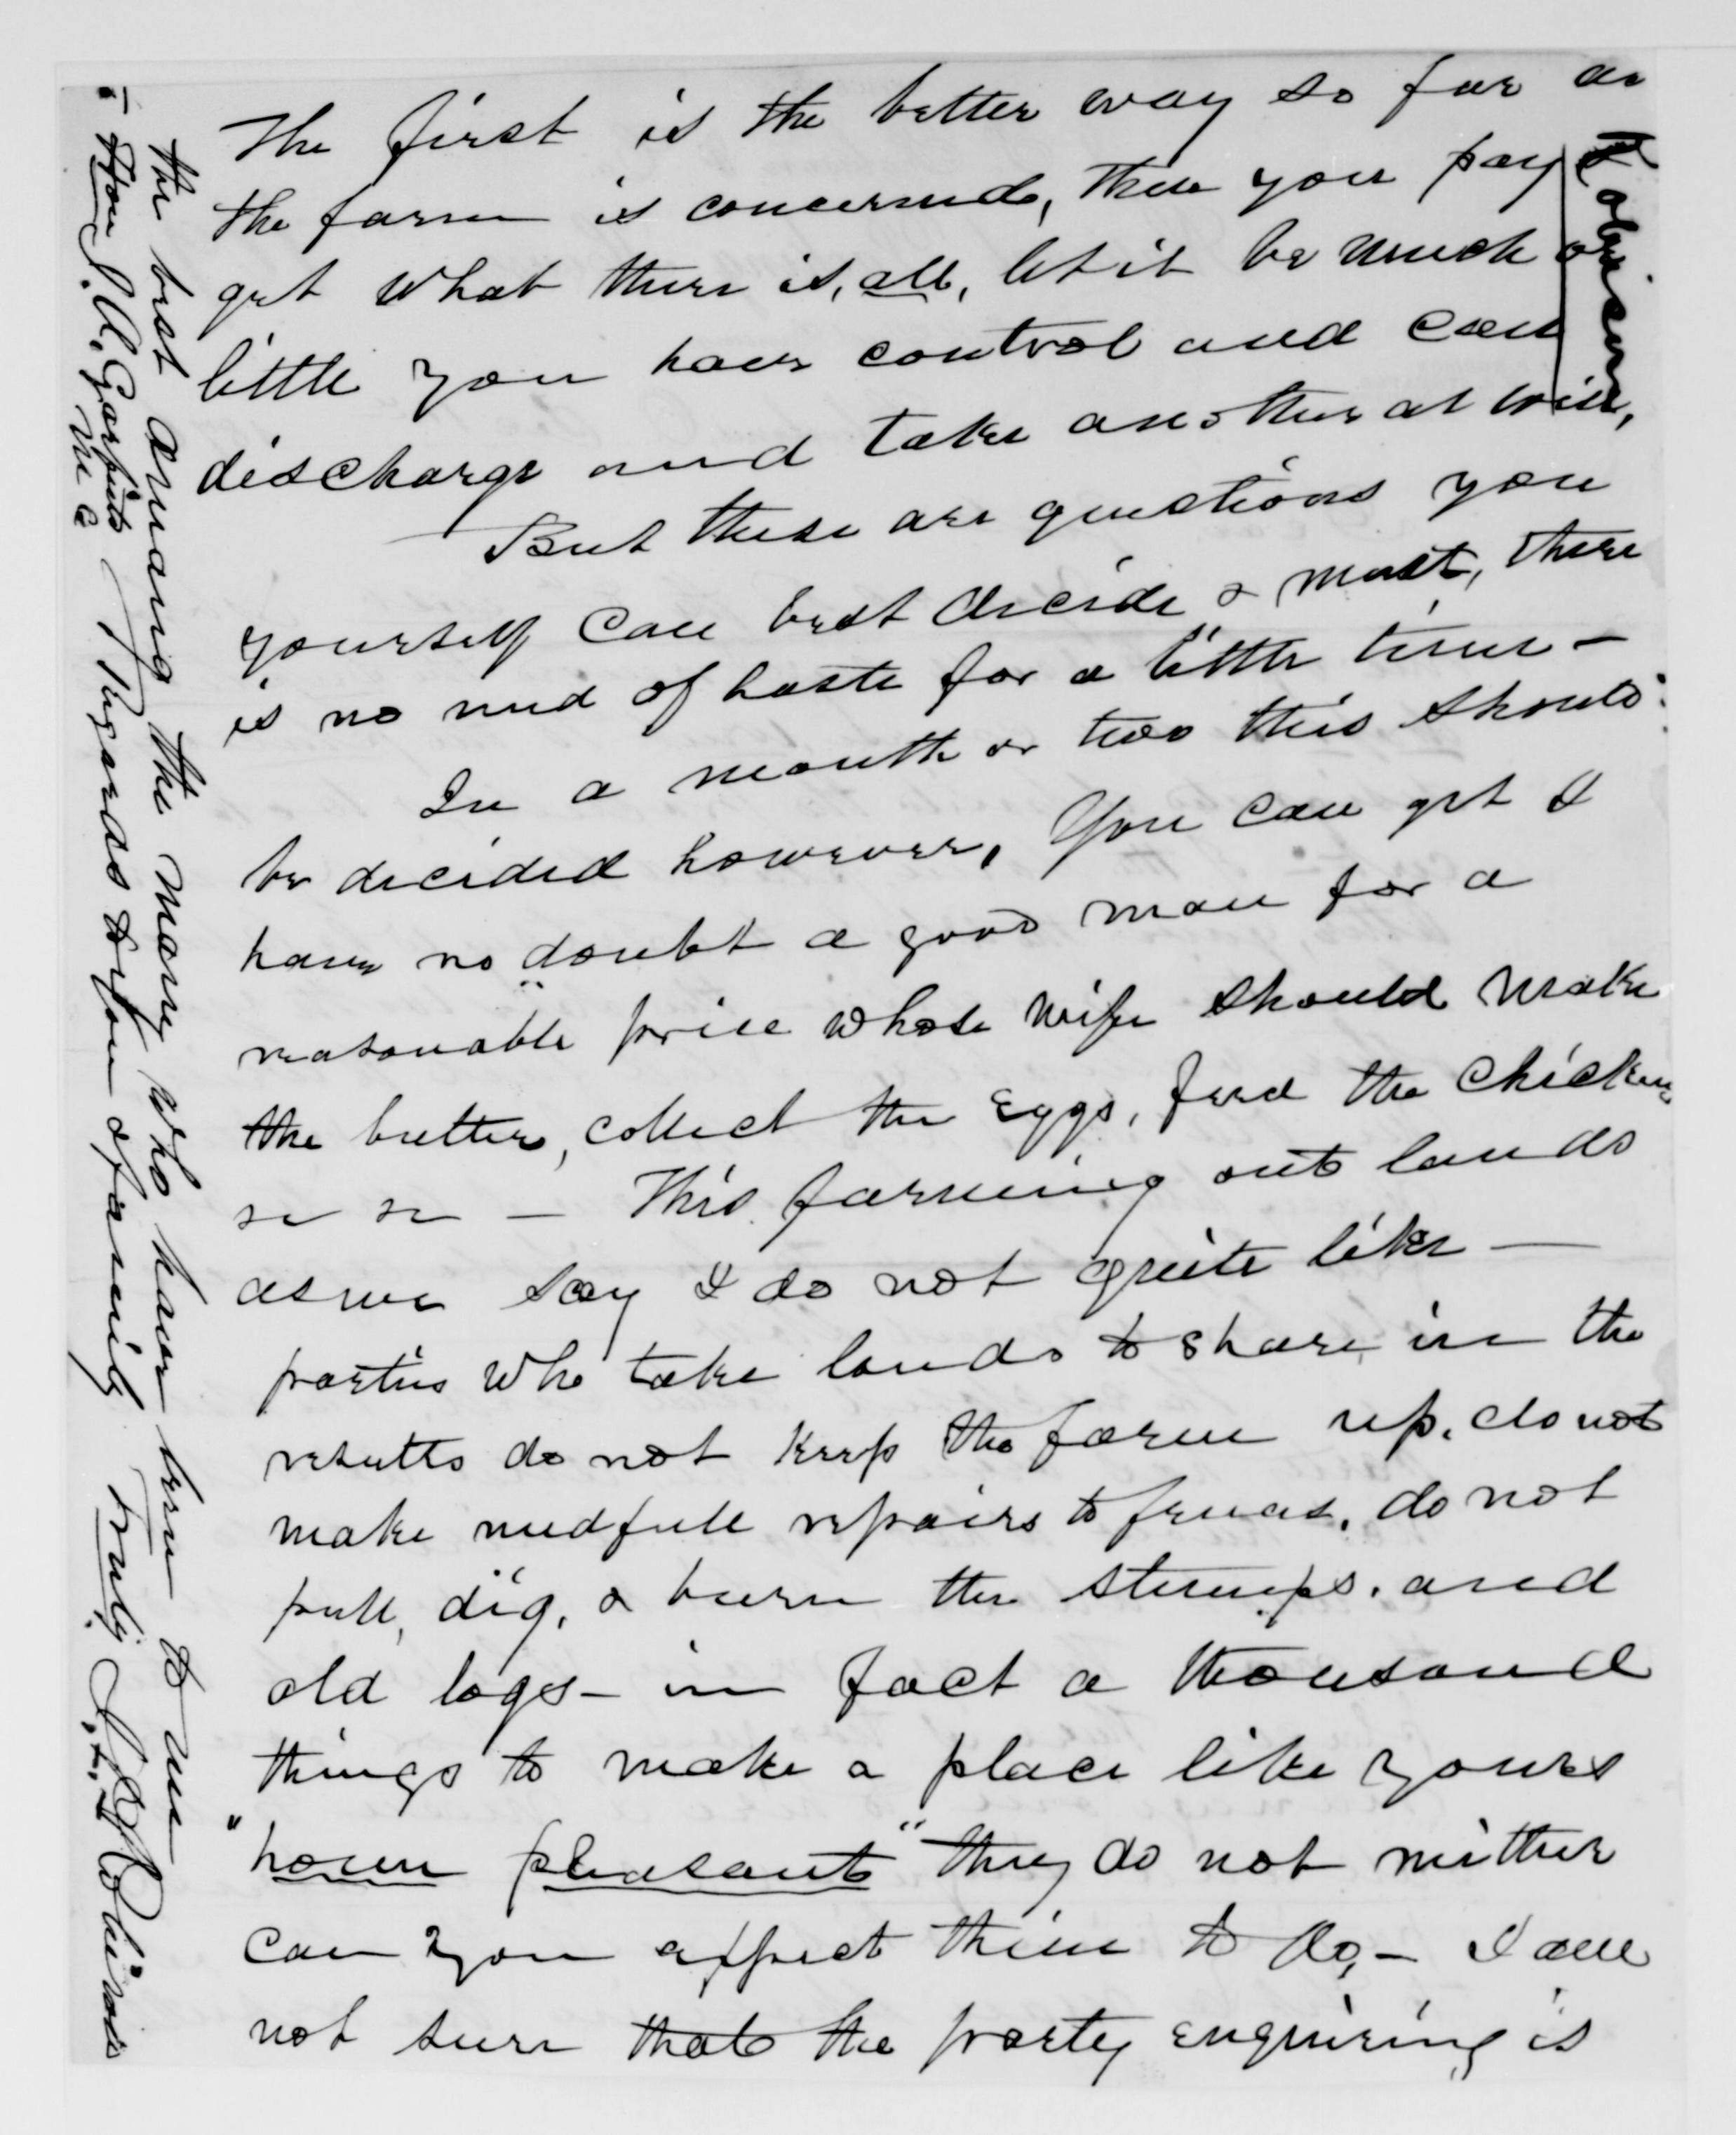 The first is the better way so far as
the farm is concerned, there you pay &
get what there is, all, let it be much or
little you have control and can
discharge and take another at will,
But these are questions you
yourself can best decide & must, there
is no need of haste for a little time –
In a month or two this should
be decided however, You can get I
have no doubt a good man for a
reasonable price whose wife should make
the butter, collect the eggs, feed the chickens
&c &c – This farming out lands
as we say I do not quite like —
parties who take lands to share in the
results do not keep the farm up, do not
make needfull repairs to fences, do not
pull, dig, & burn the stumps, and
old logs – in fact a thousand
things to make a place like yours
"home pleasant" they do not neither
can you expect them to do, – I am
not sure that the party enquiring is
the best among the many who have been to me
Regards to you & family Truly
Hon J. A. Garfield
M C
Robison